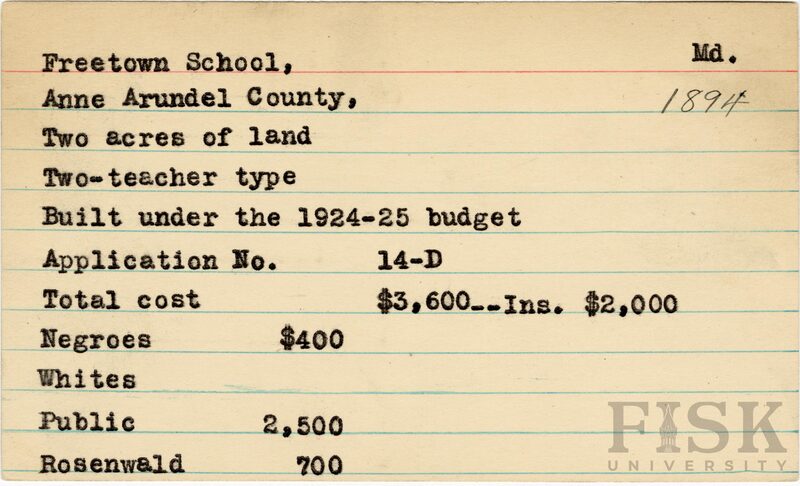 Freetown School, Md.
Anne Arundel County, 1894
Two acres of land
Two-teacher type
Built under the 1924-25 budget
Application No. 14-D
Total cost $3,600--Ins. $2,000
Negroes $400
Whites
Public 2,500
Rosenwald 700
FISK
UNIVERSITY